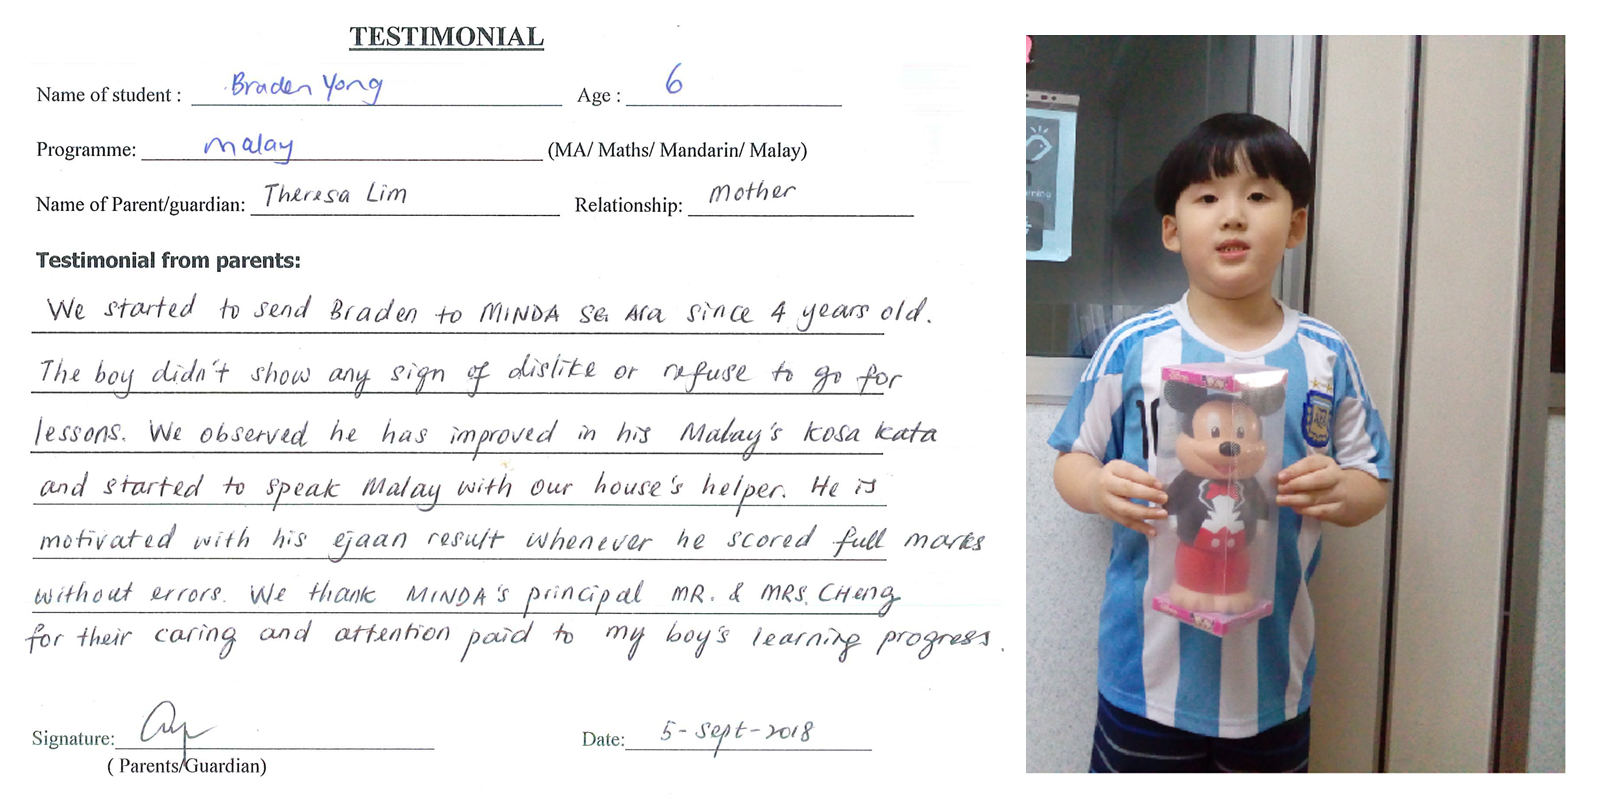 TESTIMONIAL
Name of student : Braden Yong Age : 6
Programme: Malay (MA/ Maths/ Mandarin/ Malay)
Name of Parent/guardian: Theresa Lim Relationship: Mother
Testimonial from parents:
We started to send Braden to MINDA SG. Ara since 4 years old.
The boy didn't show any sign of dislike or refuse to go for
lessons. We observed he has improved in his Malay's kosa kata
and started to speak Malay with our house's helper. He is
motivated with his ejaan result whenever he scored full marks
without errors. We thank MINDA's principal MR. & MRS. CHENG
for their caring and attention paid to my boy's learning progress.
Signature: Date: 5-Sept-2018
( Parents/Guardian)